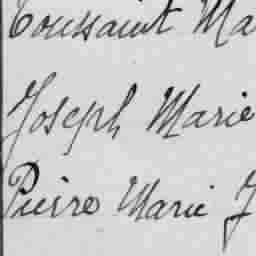 Toussaint Ma
Joseph Marie
Pierre Marie J